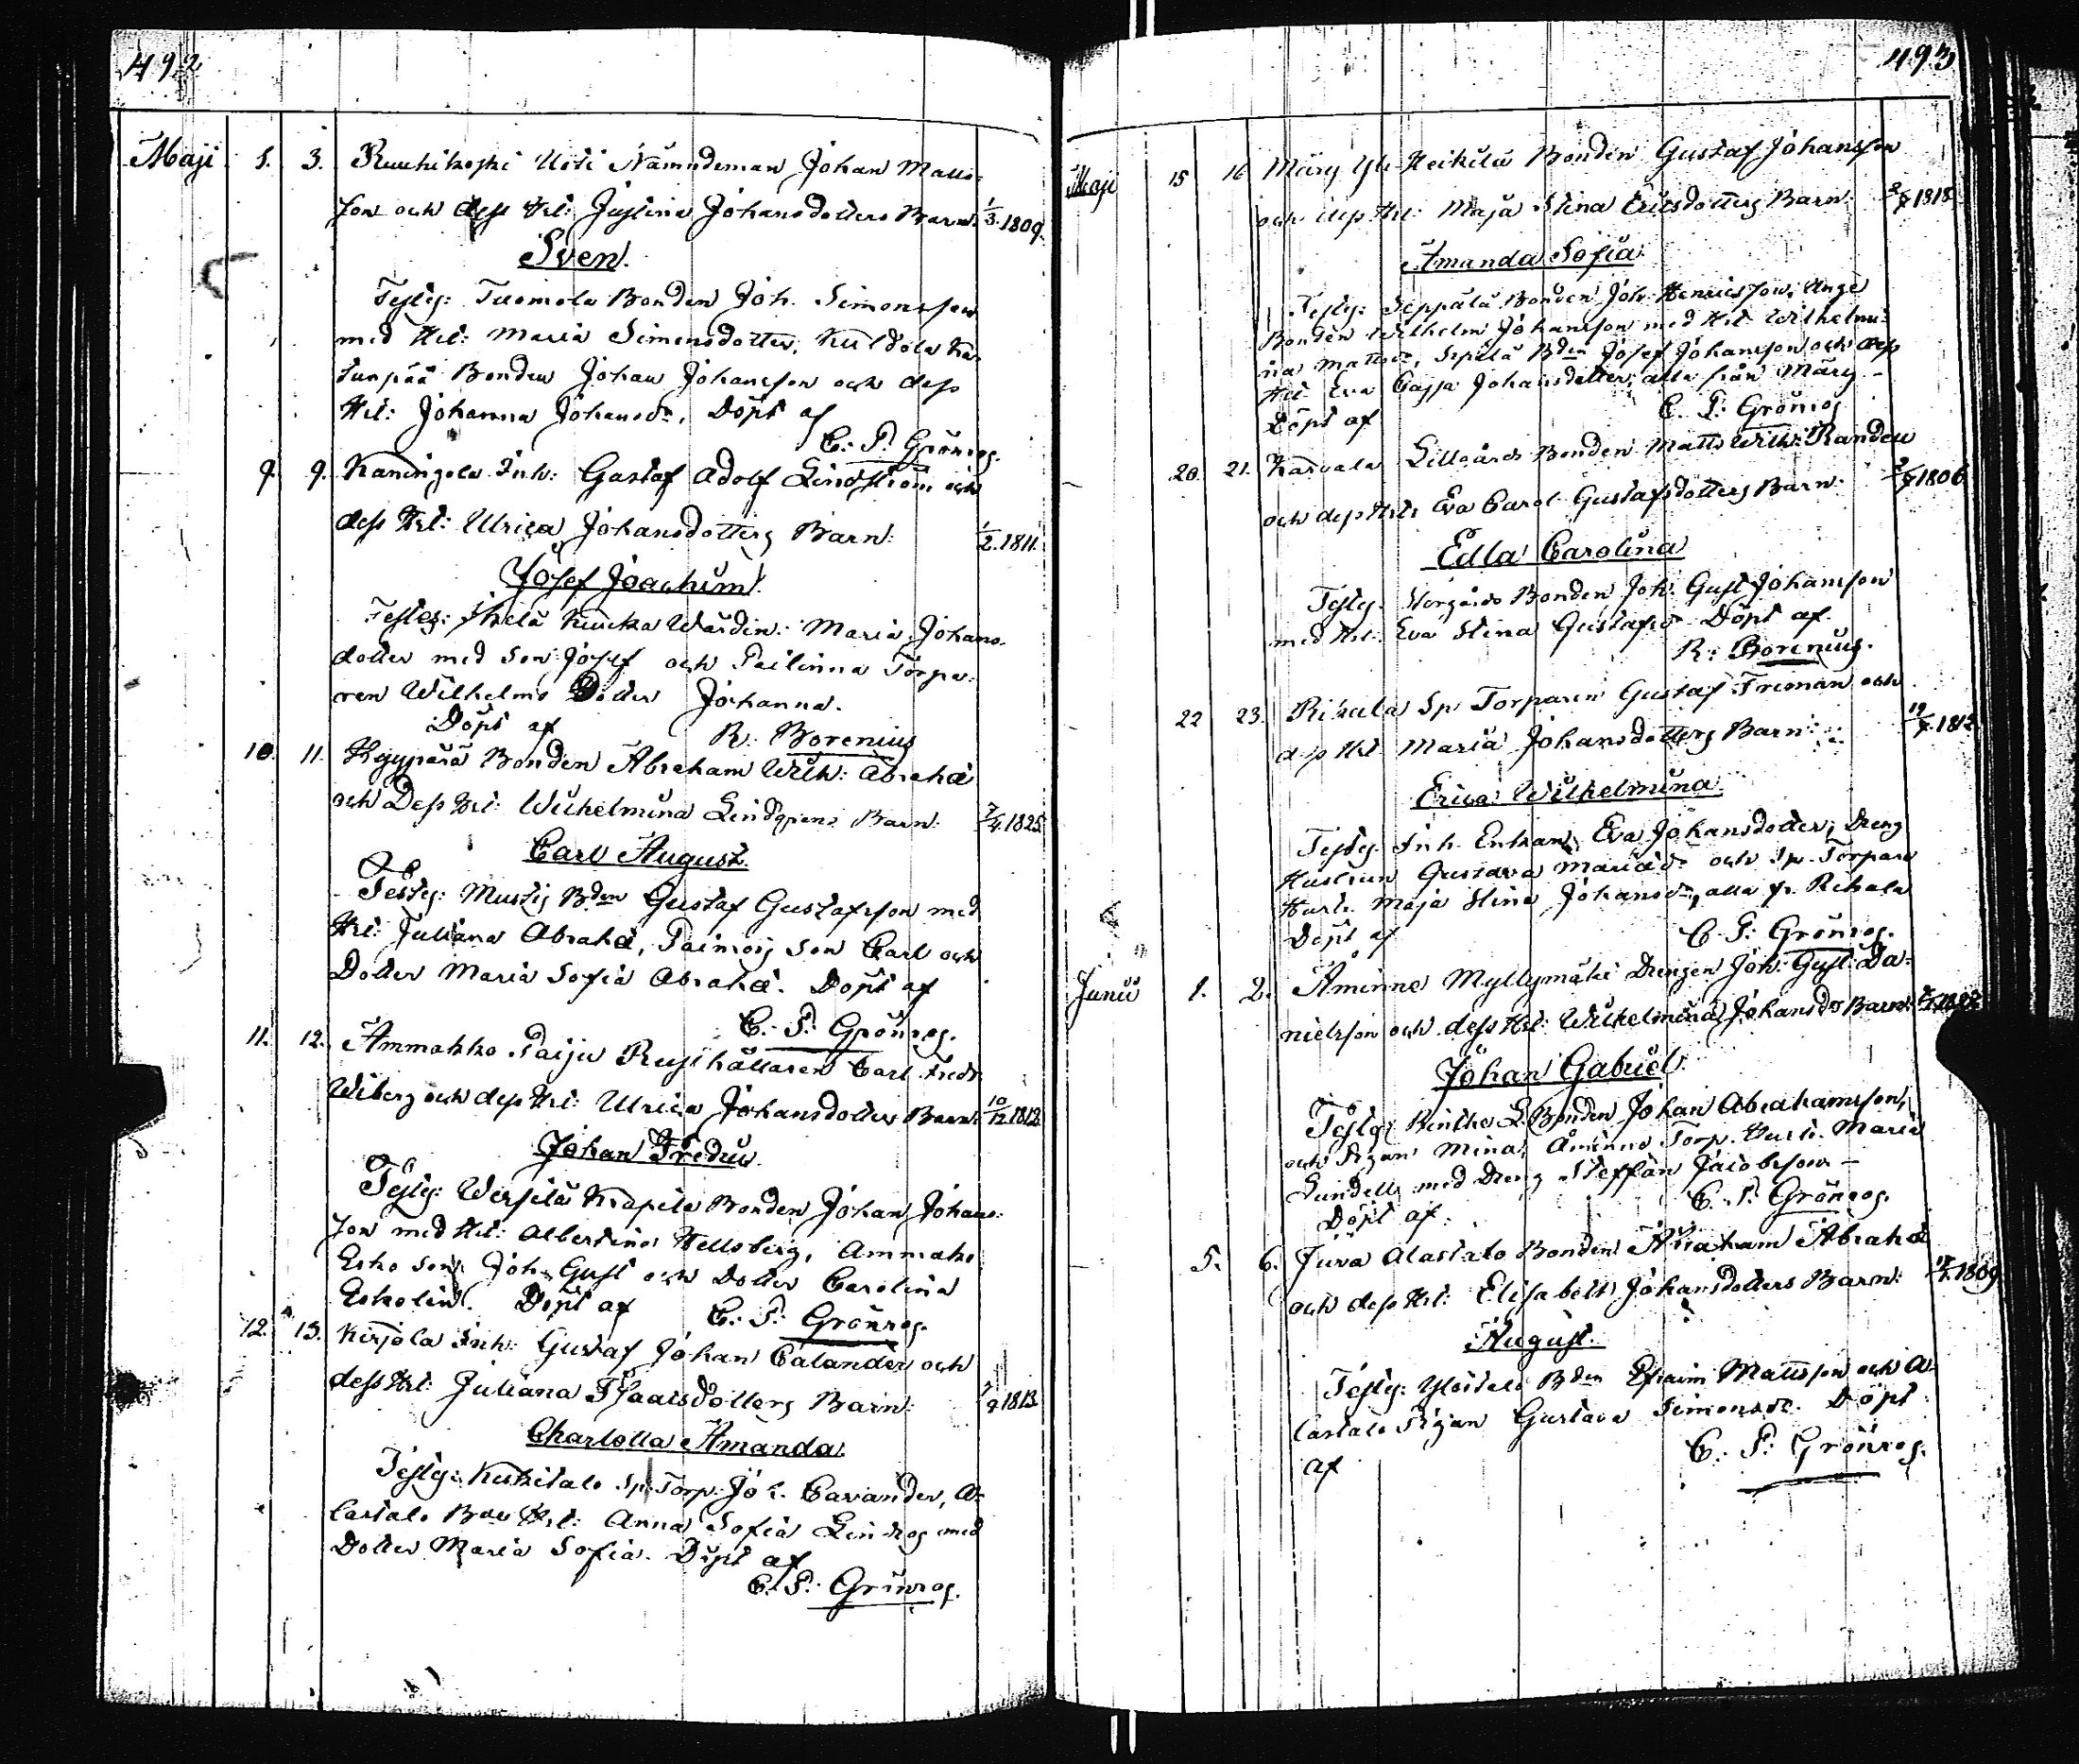 492
Maji 1. 3. Ruuhikoski Uoti Nämndeman Johan Matts-
son och dess Hst: Justina Johansdotters Barn: 1/3. 1809.
Sven.
Testes: Tuomola Bonden Joh. Simonsson
med Hst: Maria Simonsdotter,
Bonden Johan Johansson och dess
Hst: Johanna Johansdr. Döpt af
C. P. Grönros.
9. 9. Kaningola Inh: Gustaf Adolf Lindström och
dess Hst: Ulrica Johansdotters Barn: 1/2. 1811.
Josef Joachim.
Testes: Wärdin: Maria Johans-
dotter med Son Josef och Torpa-
ren Wilhelms Dotter Johanna.
Döpt af R: Borenius
10. 11. Hyypärä Bonden Abraham Wilh: Abraha
och Dess Hst: Wilhelmina Lindqvists Barn: 7/4. 1825.
Carl August.
Testes: Mustig Bden Gustaf Gustafsson med
Hst: Juliana Abraha, son Carl och
Dotter Maria Sofia Abraha. Döpt af
C. P. Grönros.
11. 12. Ammakko Paiju Rusthållaren Carl Fredr
Wiberg och dess Hst: Ulrica Johansdotters Barn: 10/12. 1812.
Johan Fredric.
Testes: Krapila Bonden Johan Johans-
son med Hst: Albertina Hellsberg, Ammako
Esko Son Joh. Gust och Dotter Carolina
Eskolin. Döpt af C. P. Grönros.
12. 13. Kirjola Inh: Gustaf Johan Calander och
dess Hst: Juliana Isaacsdotters Barn: 1813.
Charlotta Amanda.
Testes: Kukitalo Sp. Torp. Joh. Cavander, A-
lastalo Hst: Anna Sofia Lindros med
Dotter Maria Sofia. Döpt af
C. P. Grönros.
493
Maji 15 16 Märy Yli Heikilä Bonden Gustaf Johansson
och dess Hst: Maja Stina Ericsdotters Barn: 1818.
Amanda Sofia
Testes: Seppälä Bonden Joh. Henricsson,
Bonden Wilhelm Johansson med Hst. Wilhelmi-
na Mattsdr, Sepälä Bden Josef Johansson och dess
Hst Eva Cajsa Johansdotter, alla från Märy -
Döpt af C. P. Grönros
20. 21. Karvala Lillgårds Bonden Matts Wilh: Randell
och dess Hst: Eva Carol. Gustafsdotters Barn: 1806.
Edla Carolina
Testes. Storgårds Bonden Joh. Gust Johansson
med Hst. Eva Stina Gustafsdr Döpt af
R: Borenius.
22 23. Rikala Sp Torparen Gustaf Friman och
dess Hst Maria Johansdotters Barn: 1812
Erica Wilhelmina.
Testes. Inh. Enkan Eva Johansdotter, Dreng
Hustrun Gustava Mariædr och Sp. Torpare
Hust. Maja Stina Johansdr, alla fr. Rikala
Döpt af C. P. Grönros.
Junii 1. 2. Åminne Myllymäki Drengen Joh: Gust: Da-
nielsson och dess Hst: Wilhelmina Johansdrs Barn:
Johan Gabriel.
Testes: Bonden Johan Abrahamsson,
och Pigan Mina, Åminne Torp. Hust. Maria
Lundell med Dreng Steffan Jacobsson -
Döpt af. C. P. Grönros.
5. 6. Juva Alastalo Bonden Abraham Abraha
och dess Hst: Elisabeth Johansdotters Barn: 1809
August.
Testes: Ylöstalo Bden Efraim Mattsson och A-
lastalo Pigan Gustava Simonsdr. Döpt
af C. P. Grönros.